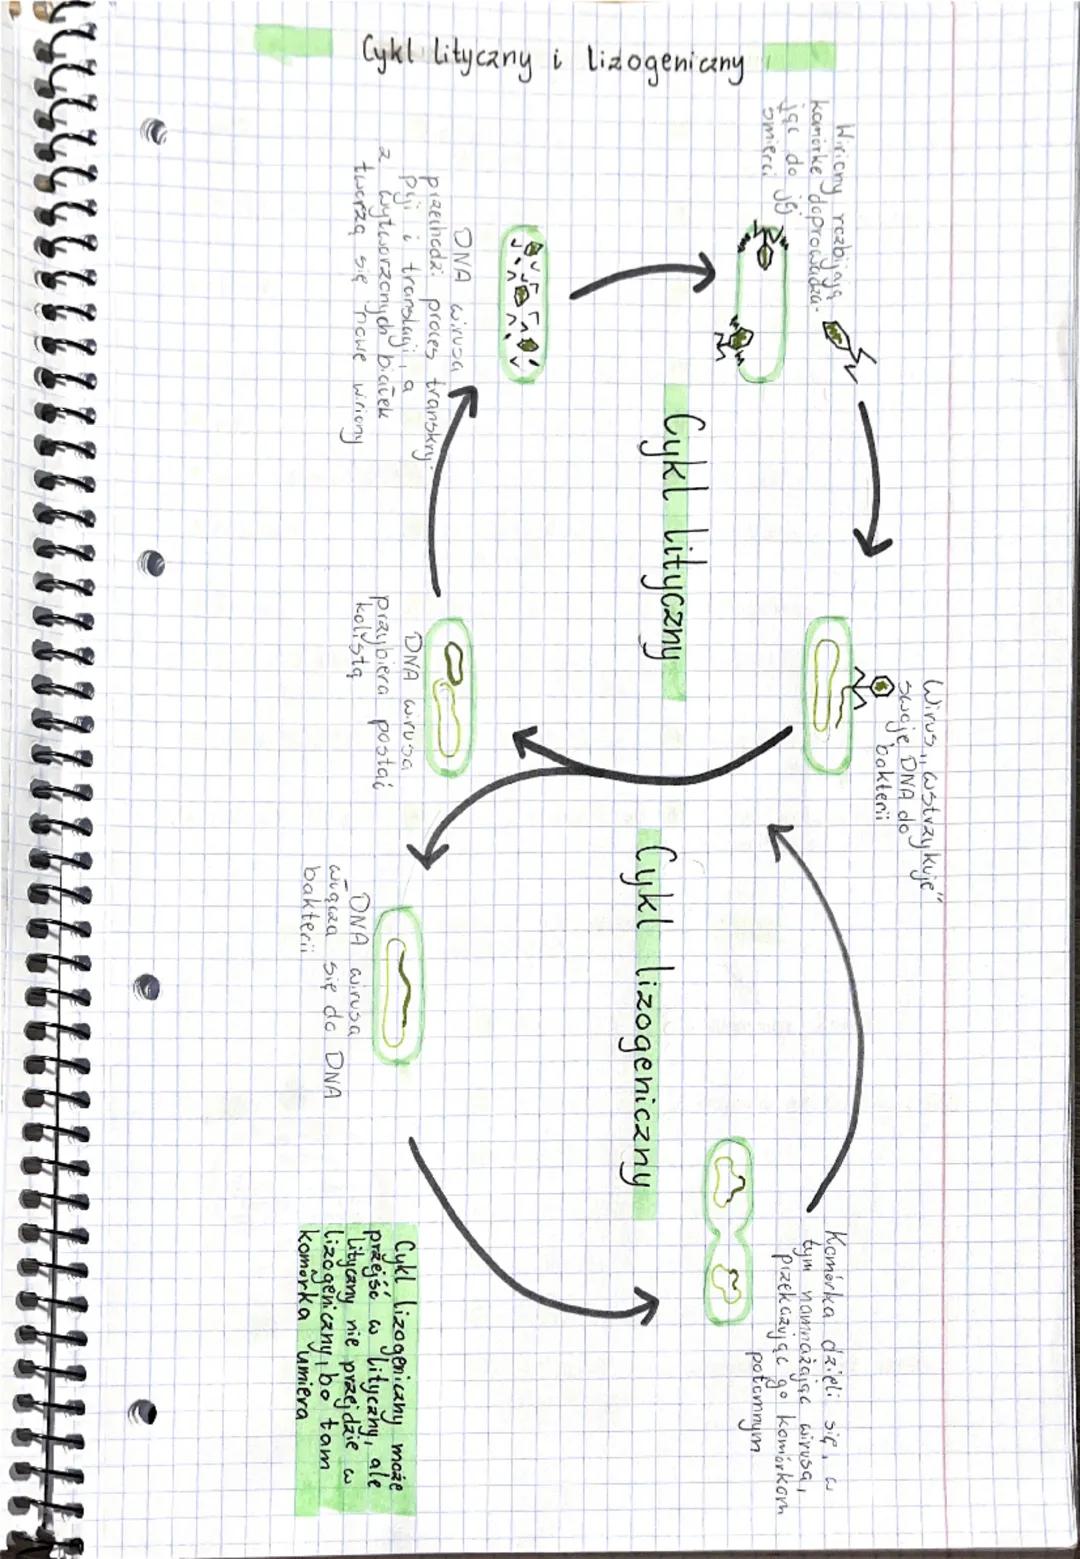 Cykl lityczny i lizogeniczny
Wirus „wstrzykuje"
swoje DNA do
bakterii
Wiriony rozbijają
komórkę doprowadza-
jąc do jej
śmierci
Cykl lityczny
DNA wirusa
przechodzi proces transkry-
pcji i translacji, a
z wytworzonych białek
tworzą się nowe wiriony
DNA wirusa
przybiera postać
kolistą
Cykl lizogeniczny
DNA wirusa
włącza się do DNA
bakterii
Komórka dzieli się, w
tym namnażając wirusa,
przekazując go komórkom
potomnym
Cykl lizogeniczny może
przejść w lityczny, ale
lityczny nie przejdzie w
lizogeniczny, bo tam
komórka umiera